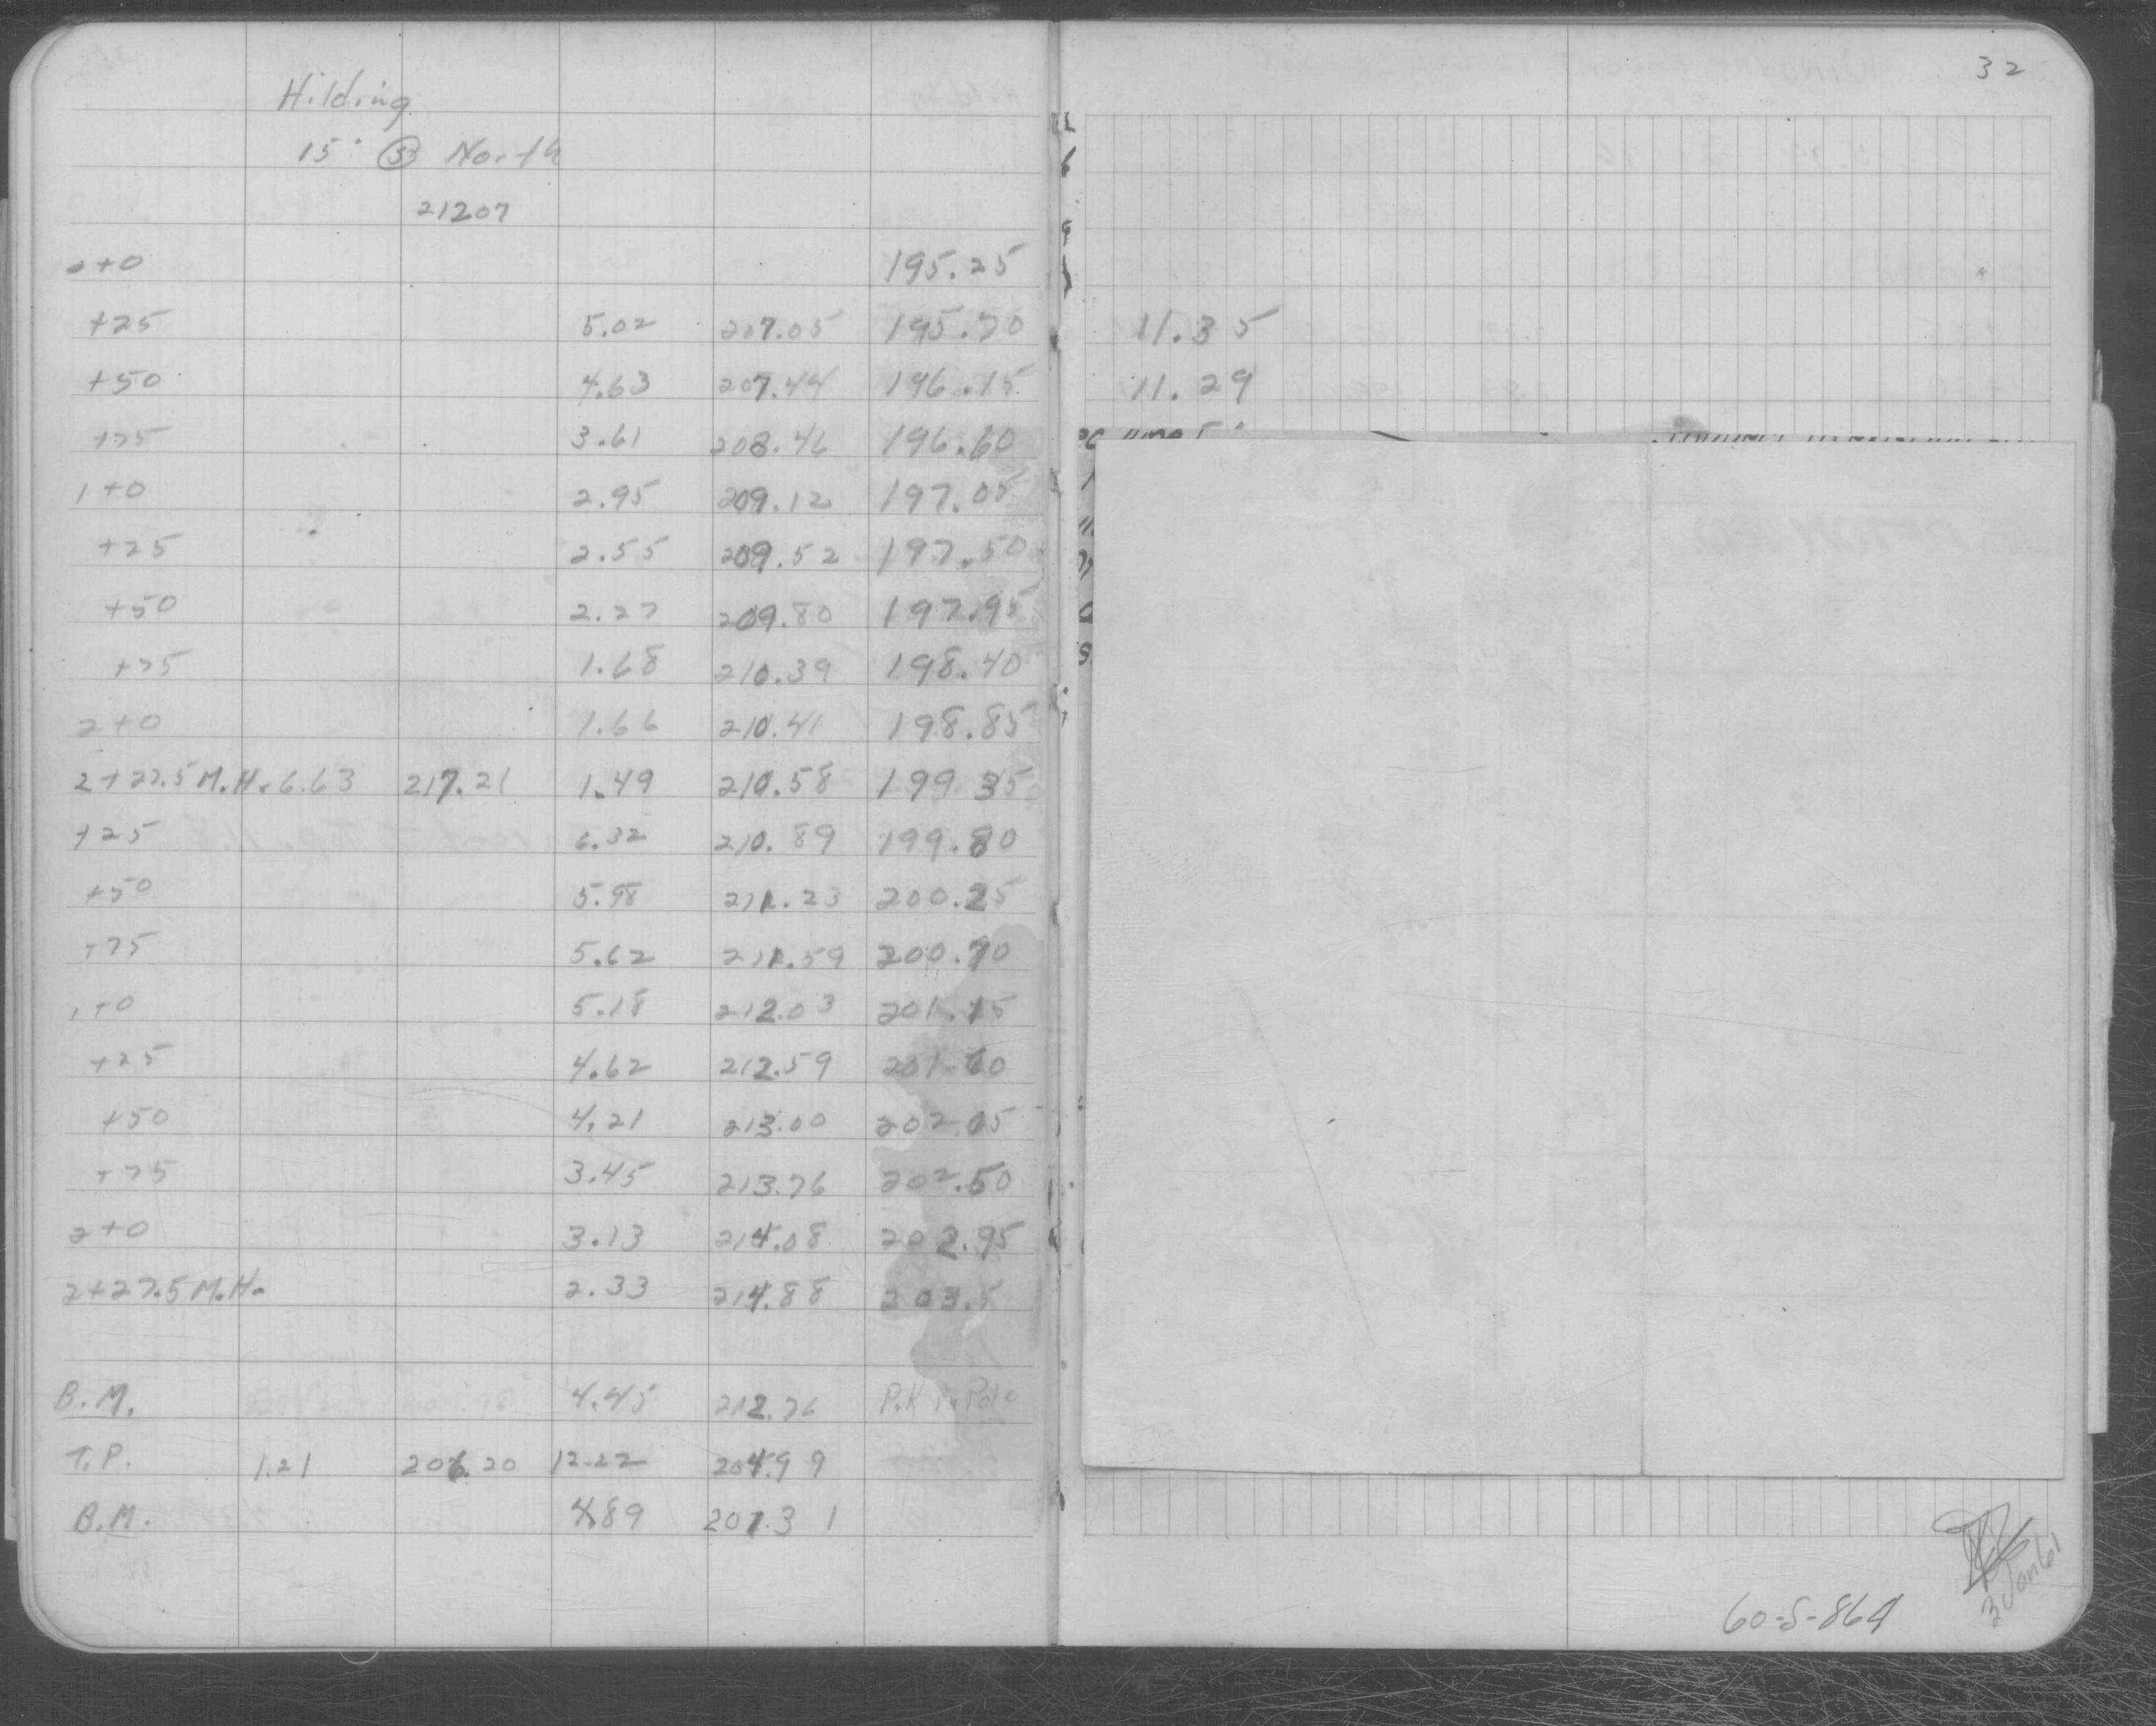 32
Hilding
15" (S) North
21207
2+0 195.25
+25 5.02 207.05 195.70 11.35
+50 4.63 207.44 196.15 11.29
+75 3.61 208.46 196.60
1+0 2.95 209.12 197.05
+25 2.55 209.52 197.50
+50 2.27 209.80 197.95
+75 1.68 210.39 198.40
2+0 1.66 210.41 198.85
2+27.5 M.H. 6.63 217.21 1.49 210.58 199.35
+25 6.32 210.89 199.80
+50 5.98 211.23 200.25
+75 5.62 211.59 200.70
1+0 5.18 212.03 201.15
+25 4.62 212.59 201.60
+50 4.21 213.00 202.05
+75 3.45 213.76 202.50
2+0 3.13 214.08 202.95
2+27.5 M.H. 2.33 214.88 203.5
B.M. 4.45 212.76 P.K in Pole
T.P. 1.21 206.20 12.22 204.99
B.M. 4.89 201.31
3 Jan 61
60-S-864